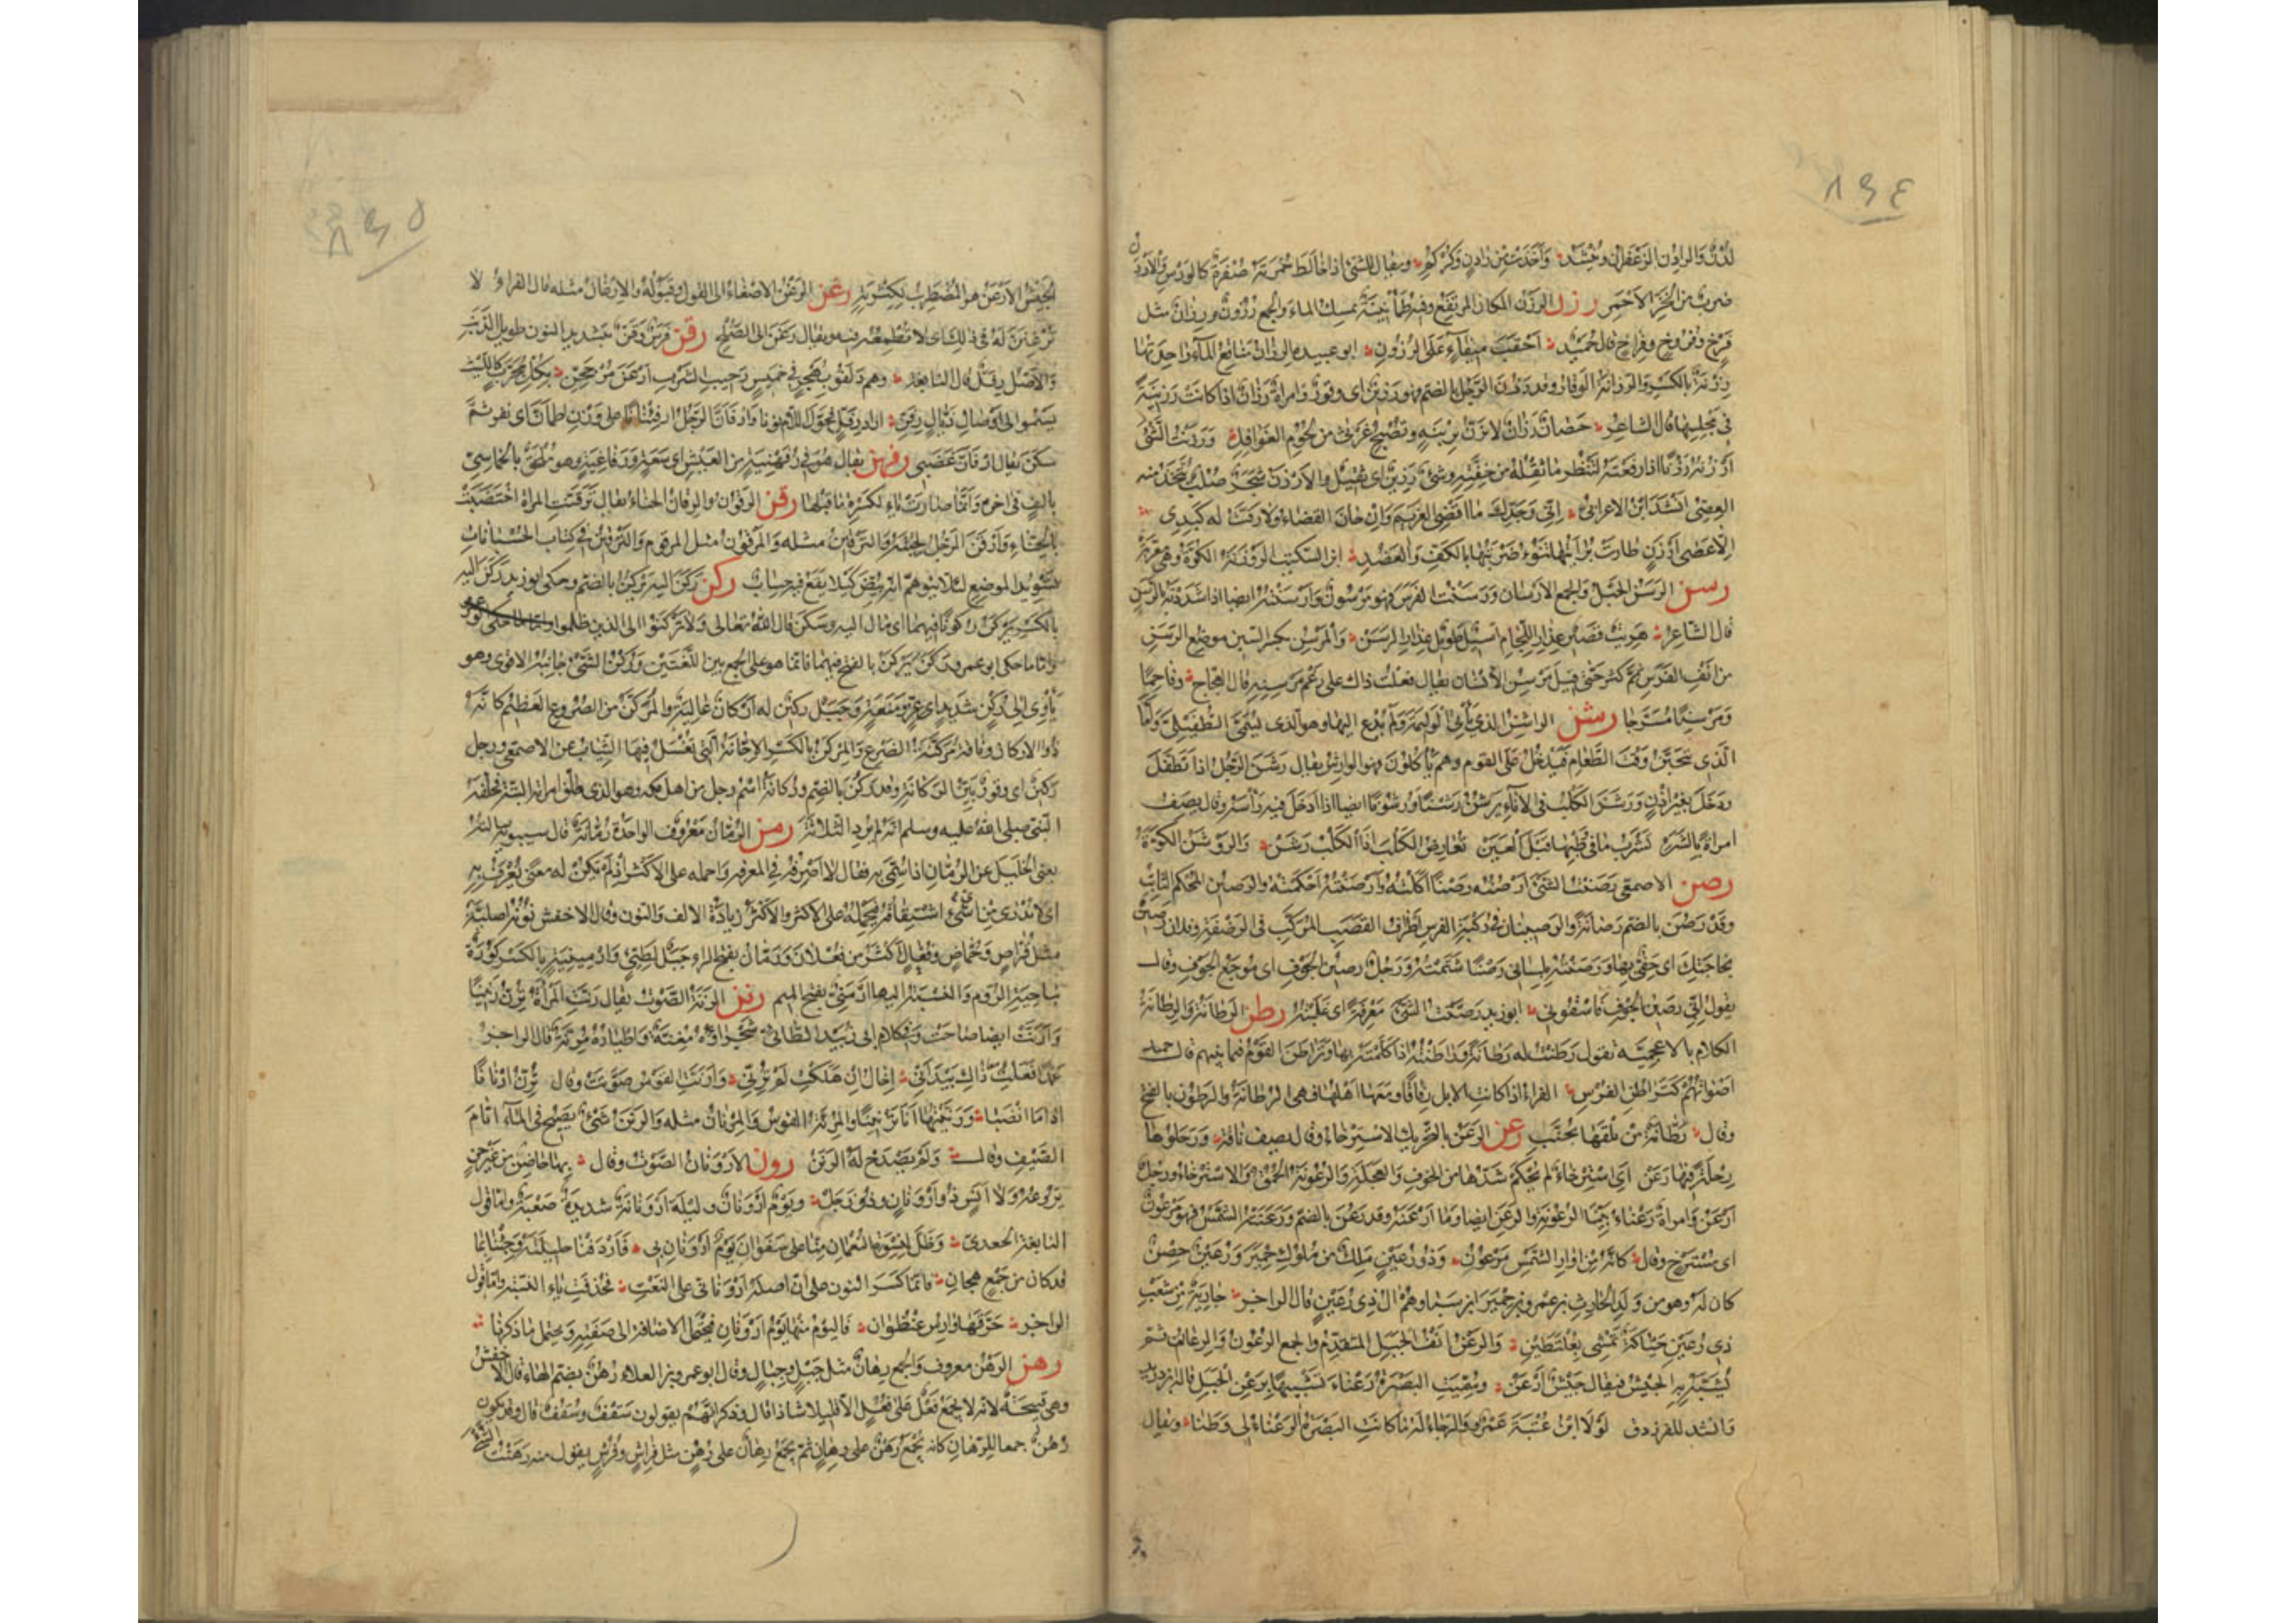 ٨٩٤
لَدْنٌ والرادِن الزعفران وينشد وأخذت من رادن وكركم ويقال للشيء اذا خالط حمرته صفرة كالورس والأردن
ضرب من الخز الأحمر رزن الرزن المكان المرتفع وفيه طمأنينة يمسك الماء والجمع رزون ورزان مثل
فرخ وفروخ وفراخ قال حميد أحقب ميفاء على الرزون ابو عبيده الرزان مناقع الماء واحدتها
رزنة بالكسر والرزانة الوقار وقد رزن الرجل بالضم فهو رزين اى وقور وامراة رزان اذا كانت رزينة
فى مجلسها قال الشاعر حصان رزان لا تزن بريبة وتصبح غرثى من لحوم الغوافل ورزنت الشئ
أرزنه رزنا اذا رفعته لتنظر ما ثقله من خفته وشئ رزين اى ثقيل والأرزن شجر صلب يتخذ منه
العصى انشد ابن الاعرابى إنى وجدك ما اقضى الغريم وان حان القضاء ولا رقت له كبدى
الا عصى أرزن طارت برايتها تنوء ضربتها بالكف والعضد ابن السكيت الروزنة الكوة وهى معربة
رسن الرسن الحبل والجمع الأرسان ورسنت الفرس فهو مرسون وأرسنته ايضا اذا شددته بالرسن
قال الشاعر هريت قصير عذار اللجام أسيل طويل عذار الرسن والمرسن بكسر السين موضع الرسن
من انف الفرس ثم كثر حتى قيل مرسن الانسان يقال فعلت ذاك على رغم مرسنه قال العجاج وفاحما
ومرسنا مسرجا رشن الراشن الذى يأتى الوليمة ولم يدع اليها وهو الذى يسمى الطفيلى واما
الذى يتحين وقت الطعام فيدخل على القوم وهم يأكلون فهو الوارش يقال رشن الرجل اذا تطفل
ودخل بغير إذن ورشن الكلب فى الاناء يرشن رشنا ورشونا ايضا اذا ادخل فيه رأسه وقال يصف
امراة بالشره تشرب ما فى وطبها قبل العين تعارض الكلب اذا الكلب رشن والروشن الكوة
رصن الاصمعى رصنت الشئ أرصنه رصنا أكملته وأرصنته احكمته والرصين المحكم الثابت
وقد رصن بالضم رصانة والرصينان فى ركبة الفرس اطراف القصب المركب فى الرضفة وفلان رصين
بحاجتك اى حفى بها ورصنته بلسانى رصنا شتمته ورجل رصين الجوف اى موجع الجوف وقال
يقول إنى رصين الجوف فاسقونى ابو زيد رصنت الشئ معرفة اى علمته رطن الرطانة والرطانة
الكلام بالاعجمية تقول رطنت له رطانة وراطنته اذا كلمته بها وتراطن القوم فيما بينهم قال حميد
اصواتهم كتراطن الفرس الفراء اذا كانت الابل رفاقا ومعها اهلها فهى الرطانة والرطون بالفتح
وقال رطانة من يلقها يخيب رعن الرعن بالتحريك الاسترخاء وقال يصف ناقة ورحلوها
رحلة فيها رعن اى استرخاء لم يحكم شدها من الخوف والعجلة والرعونة الحمق والاسترخاء ورجل
أرعن وامراة رعناء بينا الرعونة والرعن ايضا وما أرعنه وقد رعن بالضم ورعنته الشمس فهو مرعون
اى مسترخ وقال كانه من أوار الشمس مرعون وذو رعين ملك من ملوك حمير ورعين حصن
كان له وهو من ولد الحارث بن عمرو بن حمير بن سبا وهم آل ذى رعين قال الراجز جارية من شعب
ذى رعين حياكة تمشى بعلطتين والرعن انف الجبل المتقدم والجمع الرعون والرعان ثم
يشبه به الجيش فيقال جيش أرعن وسميت البصرة رعناء تشبيها برعن الجبل قاله ابن دريد
وانشد للفرزدق لولا ابن عتبة عمرو والرجاء له ما كانت البصرة الرعناء لى وطنا ويقال
٨٩٥
الجيش الأرعن هو المضطرب لكثرته رغن الرغن الاصغاء الى القول وقبوله والارغان مثله قال الفراء لا
ترغنن له فى ذلك اى لا تطمعه فيه ويقال رغن الى الصلح رفن فرس رفن بتشديد النون طويل الذنب
والاصل رفل قال النابغة وهم دلفوا بهجر فى خميس رحيب السرب أرعن مرجحن بكل مجرب كالليث
يسمو الى اوصال ذيال رفن اراد رفل فحول اللام نونا وارفأن الرجل ارفئنانا على وزن اطمأن اى نفر ثم
سكن يقال ارفأن غضبى رفهن يقال هو فى رفهنية من العيش اى سعة ورفاغية وهو ملحق بالخماسى
بالف فى آخره وانما صارت ياء لكسرة ما قبلها رقن الرقون والرقان الحناء يقال ترقنت المراة اختضبت
بالحناء وأرقن الرجل لحيته والترقين مثله والمرقون مثل المرقوم والترقين فى كتاب الحسبانات
تسويد الموضع لئلا يتوهم انه بيض كيلا يقع فيه حساب ركن ركن اليه يركن بالضم وحكى ابو زيد ركن اليه
بالكسر يركن ركونا فيهما اى مال اليه وسكن قال الله تعالى ولا تركنوا الى الذين ظلموا
واما ما حكى ابو عمرو ركن يركن بالفتح فيهما فانما هو على الجمع بين اللغتين وركن الشئ جانبه الاقوى وهو
يأوى الى ركن شديد اى عز ومنعة وجبل ركين له اركان عالية والمركن من الضروع العظيم كانه
ذو الاركان وناقة مركنة الضرع والمركن بالكسر الإجانة التى تغسل فيها الثياب عن الاصمعى ورجل
ركين اى وقور بين الركانة وقد ركن بالضم وركانة اسم رجل من اهل مكه وهو الذى طلق امراته البتة فحلفه
النبى صلى الله عليه وسلم انه لم يرد الثلاث رمن الرمان معروف الواحدة رمانة قال سيبويه سالته
يعنى الخليل عن الرمان اذا سمى به فقال لا اصرفه فى المعرفه واحمله على الاكثر اذ لم يكن له معنى يعرف به
اى لا ندرى من اى شئ اشتقاقه فنحمله على الاكثر والاكثر زيادة الالف والنون وقال الاخفش نونه اصلية
مثل قراص وحماض وفعال اكثر من فعلان ورمان بفتح الراء جبل لطيئ وارمينية بالكسر كورة
بناحية الروم والنسبة اليها ارمنى بفتح الميم رنن الرنة الصوت يقال رنت المراة ترن رنينا
وأرنت ايضا صاحت وفى كلام ابى زبيد الطائى شجراؤه مغنة واطياره مرنة قال الراجز
عمدا فعلت ذاك بيد انى إخال إن هلكت لم ترنى وأرنت القوس صوتت وقال ترن إرنانا
اذا ما انضبا ورننتها انا ترنينا والمرنة القوس والمرنان مثله والرنن شئ يصيح فى الماء ايام
الصيف وقال ولم يصدح له الرنن رون الارونان الصوت وقال بها حاضر من غير جن
يروعه ولا أنس ذو أرونان وذو زجل ويوم أرونان وليلة أرونانة شديدة صعبة واما قول
النابغة الجعدى وظل لنسوة النعمان منا على سفوان يوم أرونانى فأردفنا حليلته وجئنا بما
قد كان جمع من هجان فانما كسر النون على ان اصله أرونانى على النعت فحذفت ياء النسبة واما قول
الراجز حرقها وارس عنظوان فاليوم منها يوم أرونان فيحتمل الاضافة الى صفته ويحتمل ما ذكرنا
رهن الرهن معروف والجمع رهان مثل جبل وجبال وقال ابو عمرو بن العلاء رهن بضم الهاء قال الاخفش
وهى قبيحة لانه لا يجمع فعل على فعل الا قليلا شاذا قال وذكر انهم يقولون سقف وسقف قال وقد يكون
رهن جمعا للرهان كانه يجمع رهن على رهان ثم يجمع رهان على رهن مثل فراش وفرش يقول منه رهنت الشئ